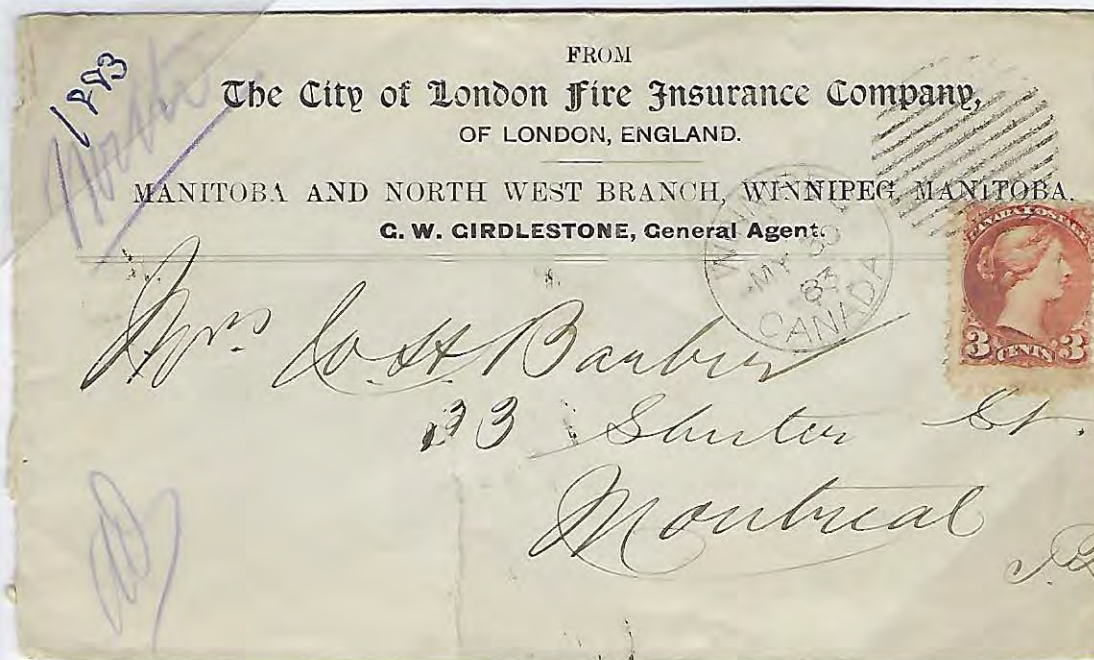 1883
FROM
The City of London Fire Insurance Company,
OF LONDON, ENGLAND.
MANITOBA AND NORTH WEST BRANCH, WINNIPEG, MANITOBA.
G. W. GIRDLESTONE, General Agent.
MY 30
83
CANADA
CANADA POSTAGE
3 CENTS 3
Mrs. H. Barber
33 Shuter St.
Montreal